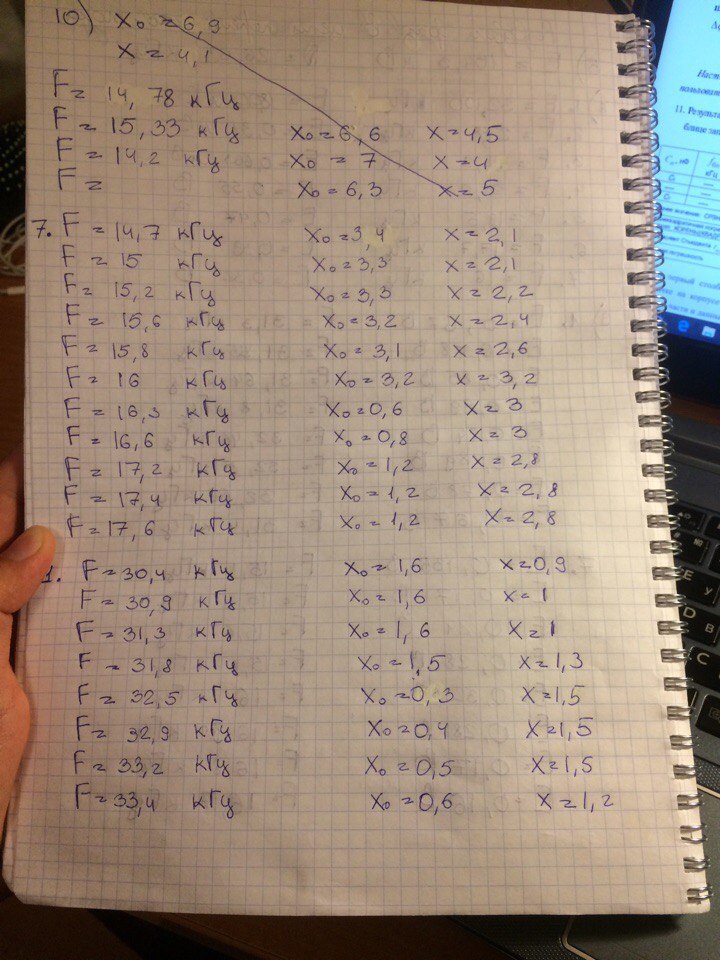 10) X₀ = 6,9
X = 4,1
F = 14,78 кГц
F = 15,33 кГц X₀ = 6,6 X = 4,5
F = 14,2 кГц X₀ = 7 X = 4
F = X₀ = 6,3 X = 5
7. F = 14,7 кГц X₀ = 3,4 X = 2,1
F = 15 кГц X₀ = 3,3 X = 2,1
F = 15,2 кГц X₀ = 3,3 X = 2,2
F = 15,6 кГц X₀ = 3,2 X = 2,4
F = 15,8 кГц X₀ = 3,1 X = 2,6
F = 16 кГц X₀ = 3,2 X = 3,2
F = 16,3 кГц X₀ = 0,6 X = 3
F = 16,6 кГц X₀ = 0,8 X = 3
F = 17,2 кГц X₀ = 1,2 X = 2,8
F = 17,4 кГц X₀ = 1,2 X = 2,8
F = 17,6 кГц X₀ = 1,2 X = 2,8
1. F = 30,4 кГц X₀ = 1,6 X = 0,9
F = 30,9 кГц X₀ = 1,6 X = 1
F = 31,3 кГц X₀ = 1,6 X = 1
F = 31,8 кГц X₀ = 1,5 X = 1,3
F = 32,5 кГц X₀ = 0,3 X = 1,5
F = 32,9 кГц X₀ = 0,4 X = 1,5
F = 33,2 кГц X₀ = 0,5 X = 1,5
F = 33,4 кГц X₀ = 0,6 X = 1,2
11. Результа